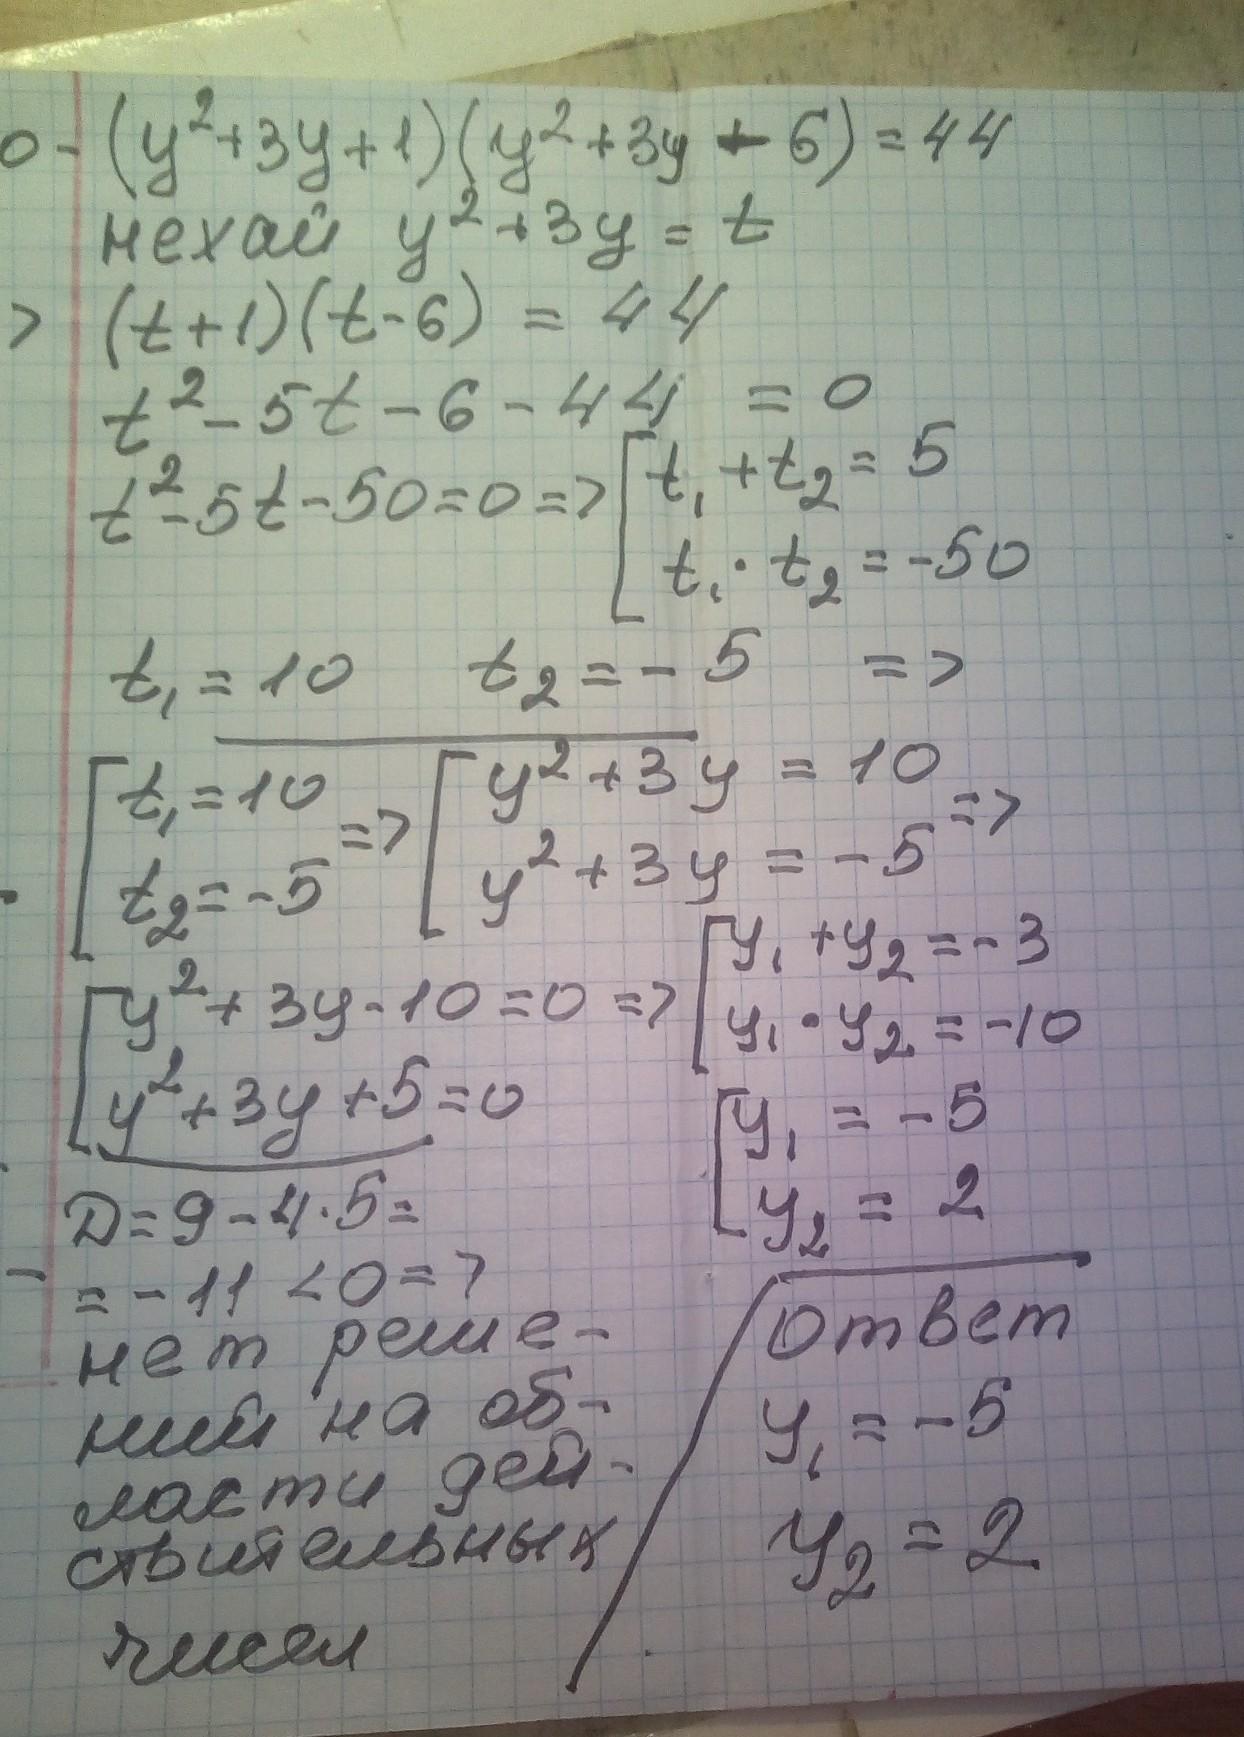 0 - (y²+3y+1)(y²+3y - 6) = 44
нехай y²+3y = t
> (t+1)(t-6) = 44
t² - 5t - 6 - 44 = 0
t² - 5t - 50 = 0 => [ t₁ + t₂ = 5
t₁ · t₂ = -50
t₁ = 10 t₂ = - 5 =>
[ t₁ = 10
t₂ = -5 => [ y² + 3y = 10
y² + 3y = - 5 =>
[ y² + 3y - 10 = 0 => [ y₁ + y₂ = - 3
y₁ · y₂ = -10
y² + 3y + 5 = 0
[ y₁ = - 5
y₂ = 2
D = 9 - 4·5 =
= - 11 < 0 =>
нет реше-
ний на об-
ласти дей-
ствительных
чисел
Ответ
y₁ = - 5
y₂ = 2